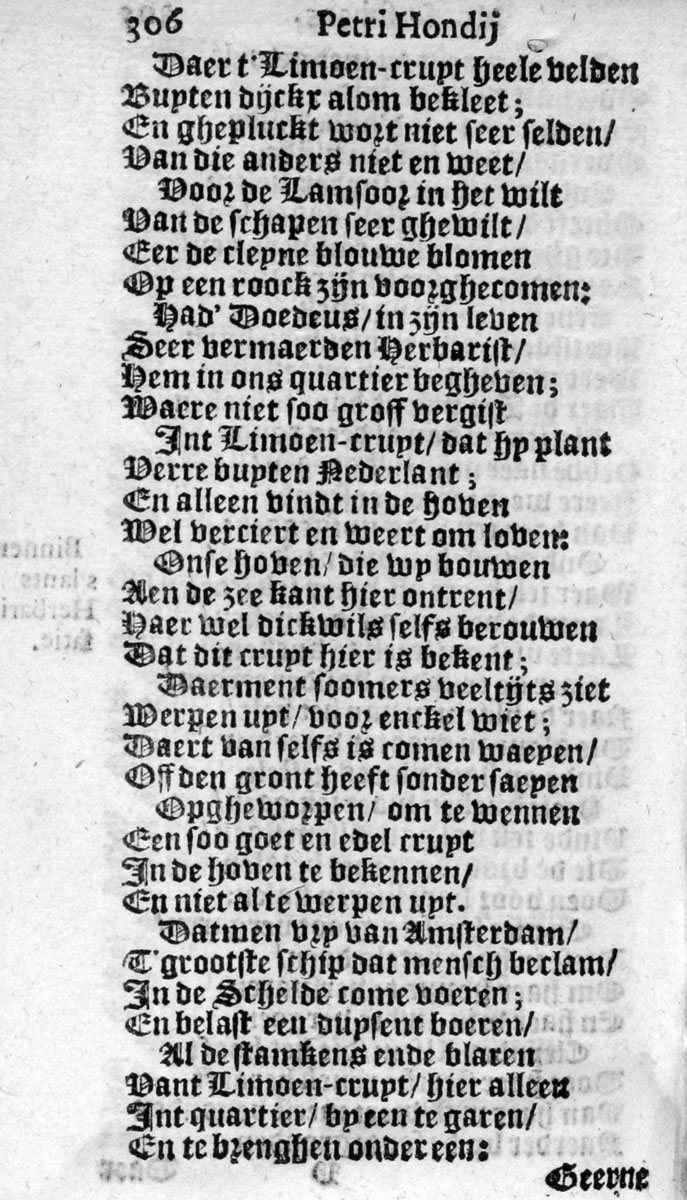 306 Petri Hondij
Daer t'Limoen-cruyt heele velden
Buyten dijckx alom bekleet;
En ghepluckt wort niet seer selden/
Van die anders niet en weet/
Voor de Lamsoor in het wilt
Van de schapen seer ghewilt/
Eer de cleyne blouwe blomen
Op een roock zijn voorghecomen:
Had' Doedeus/ in zijn leven
Seer vermaerden Herbarist/
Hem in ons quartier begheven;
Waere niet soo groff vergist
Int Limoen-cruyt/ dat hy plant
Verre buyten Nederlant;
En alleen vindt in de hoven
Wel verciert en weert om loven:
Onse hoven/ die wy bouwen
Aen de zee kant hier ontrent/
Haer wel dickwils selfs berouwen
Dat dit cruyt hier is bekent;
Daerment soomers veeltijts ziet
Werpen uyt/ voor enckel wiet;
Daert van selfs is comen waeyen/
Off den gront heeft sonder saeyen
Opgheworpen/ om te wennen
Een soo goet en edel cruyt
In de hoven te bekennen/
En niet al te werpen uyt.
Datmen vry van Amsterdam/
T'grootste schip dat mensch beclam/
In de Schelde come voeren;
En belast een duysent boeren/
Al de stamkens ende blaren
Vant Limoen-cruyt/ hier alleen
Int quartier/ by een te garen/
En te brenghen onder een:
Geerne